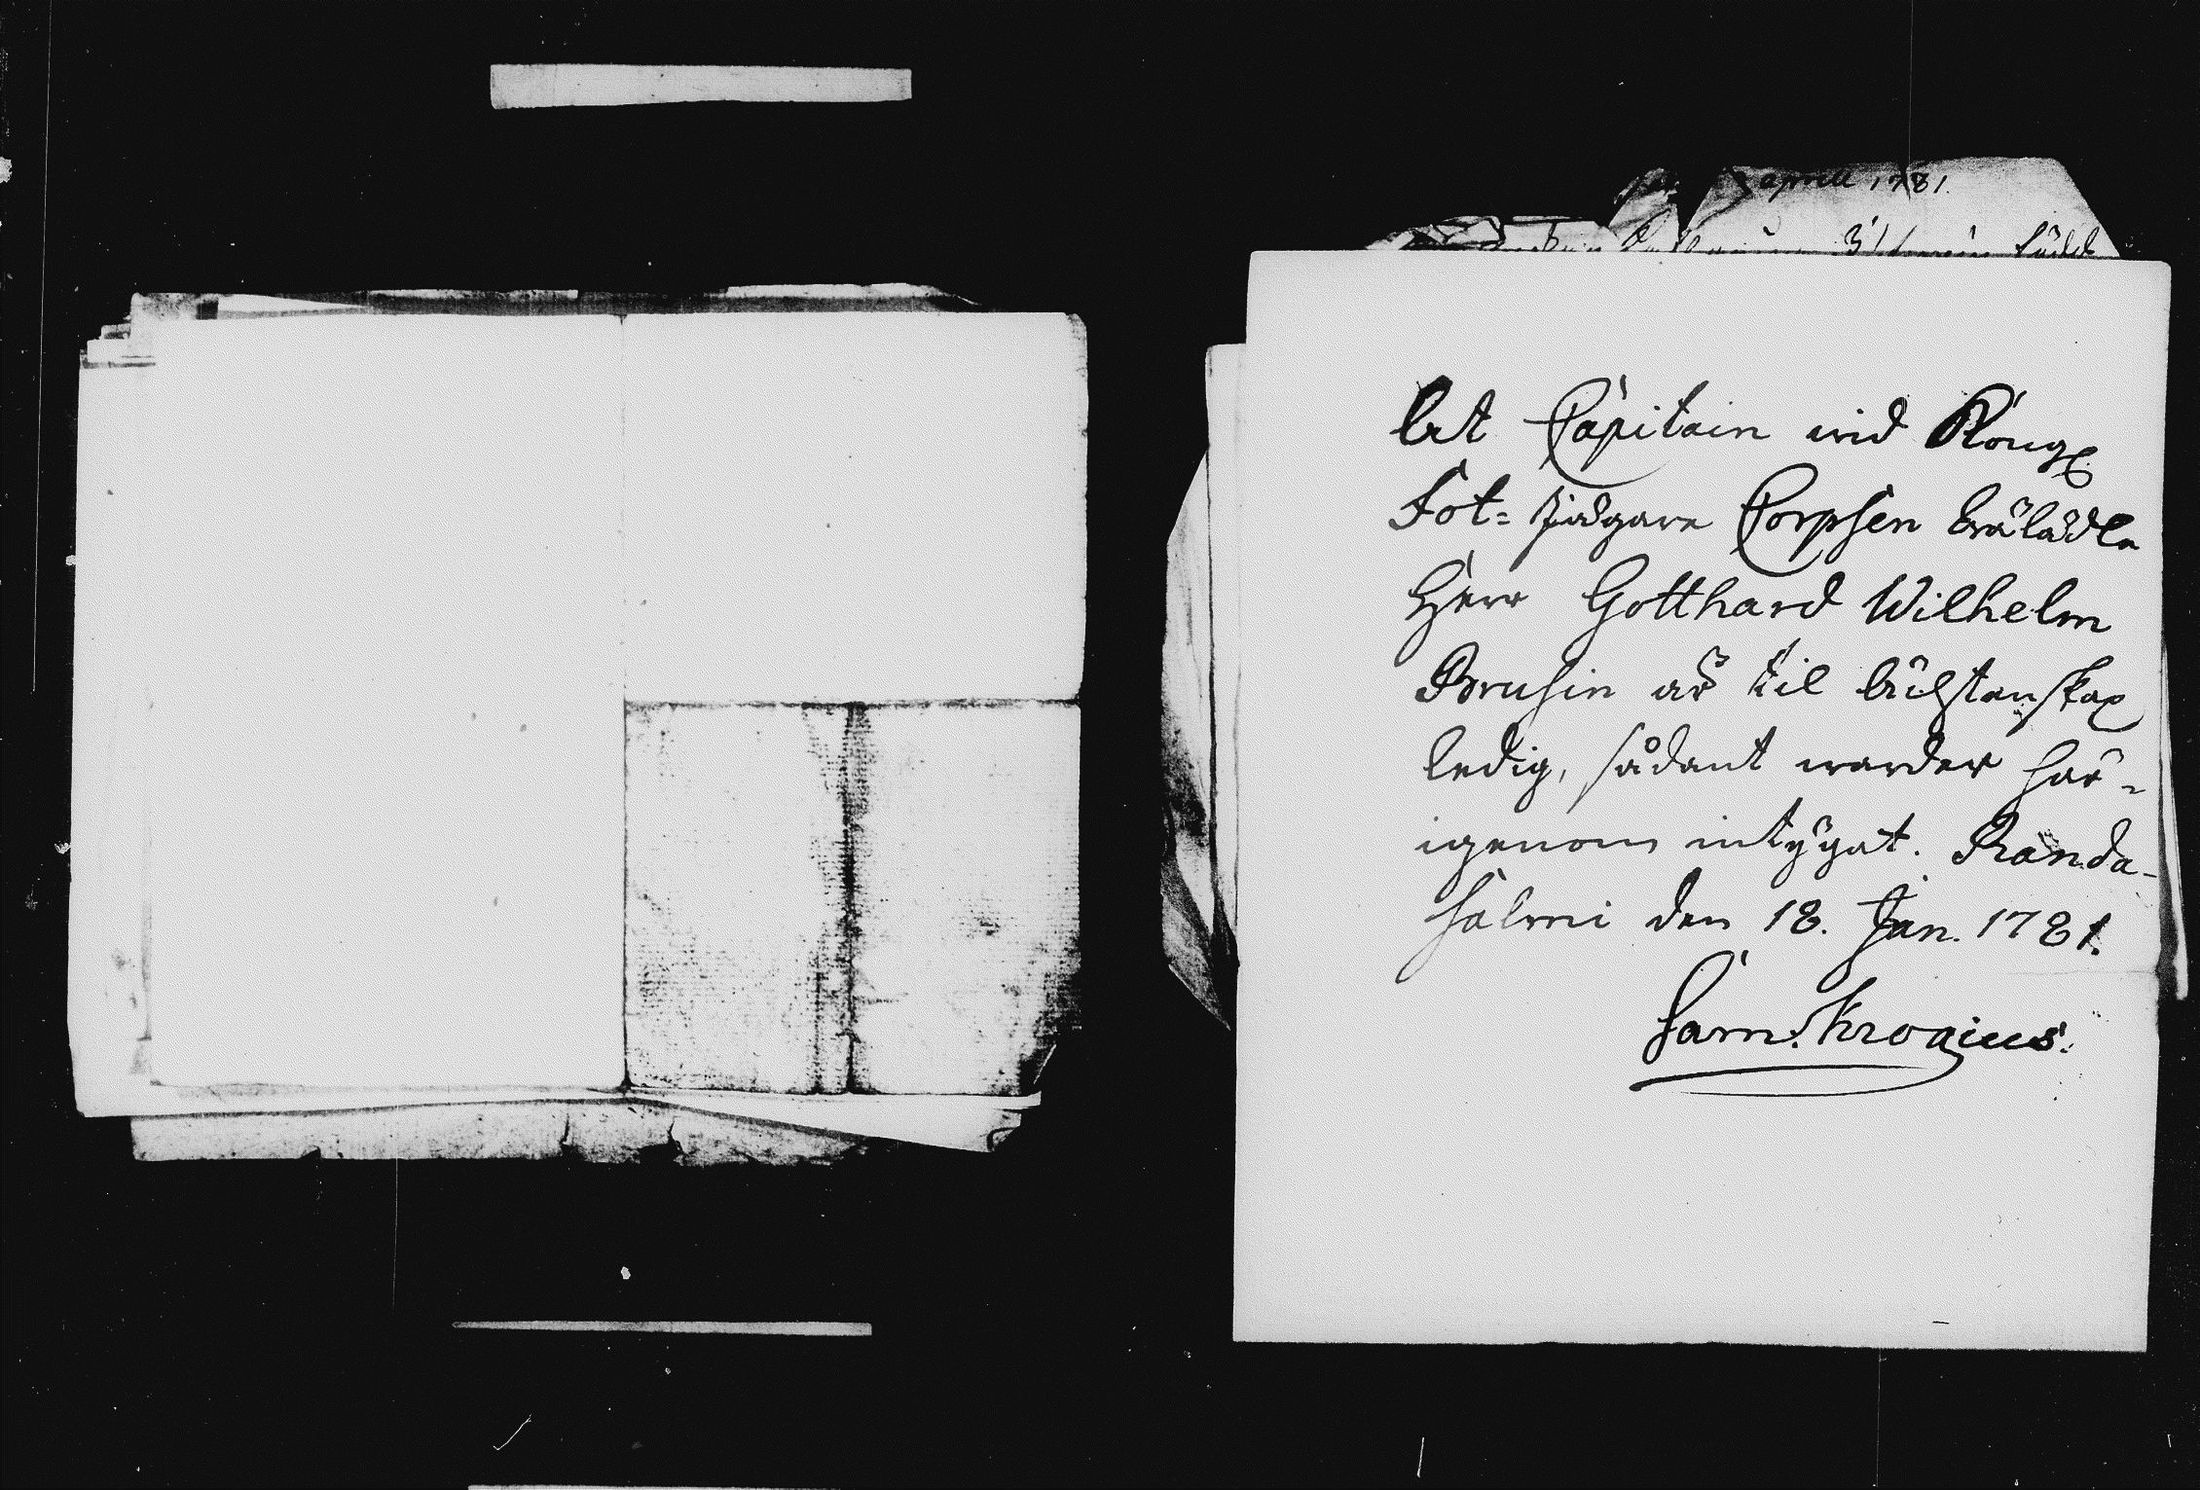 aprill 1781.
At Capitain wid Kongl
Fot=Jägare Corpsen wälädle
Herr Gotthard Wilhelm
Brusin är til ächtenskap
ledig, sådant warder här=
igenom intygat. Randa-
salmi den 18. Jan. 1781.
Sam. Krogius.